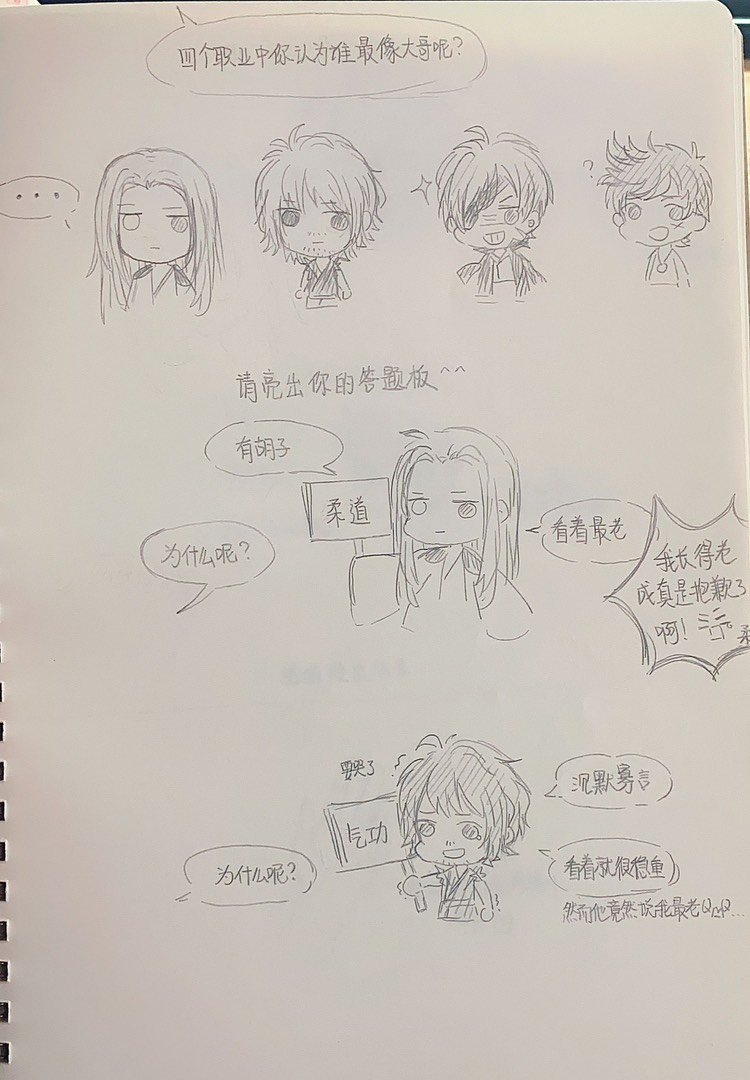 四个职业中你认为谁最像大哥呢?
...
?
请亮出你的答题板^^
有胡子
柔道
为什么呢?
看着最老
我长得老
成真是抱歉了
啊!
柔
要哭了
气功
沉默寡言
为什么呢?
看着就很稳重
然而他竟然说我最老QAQ...